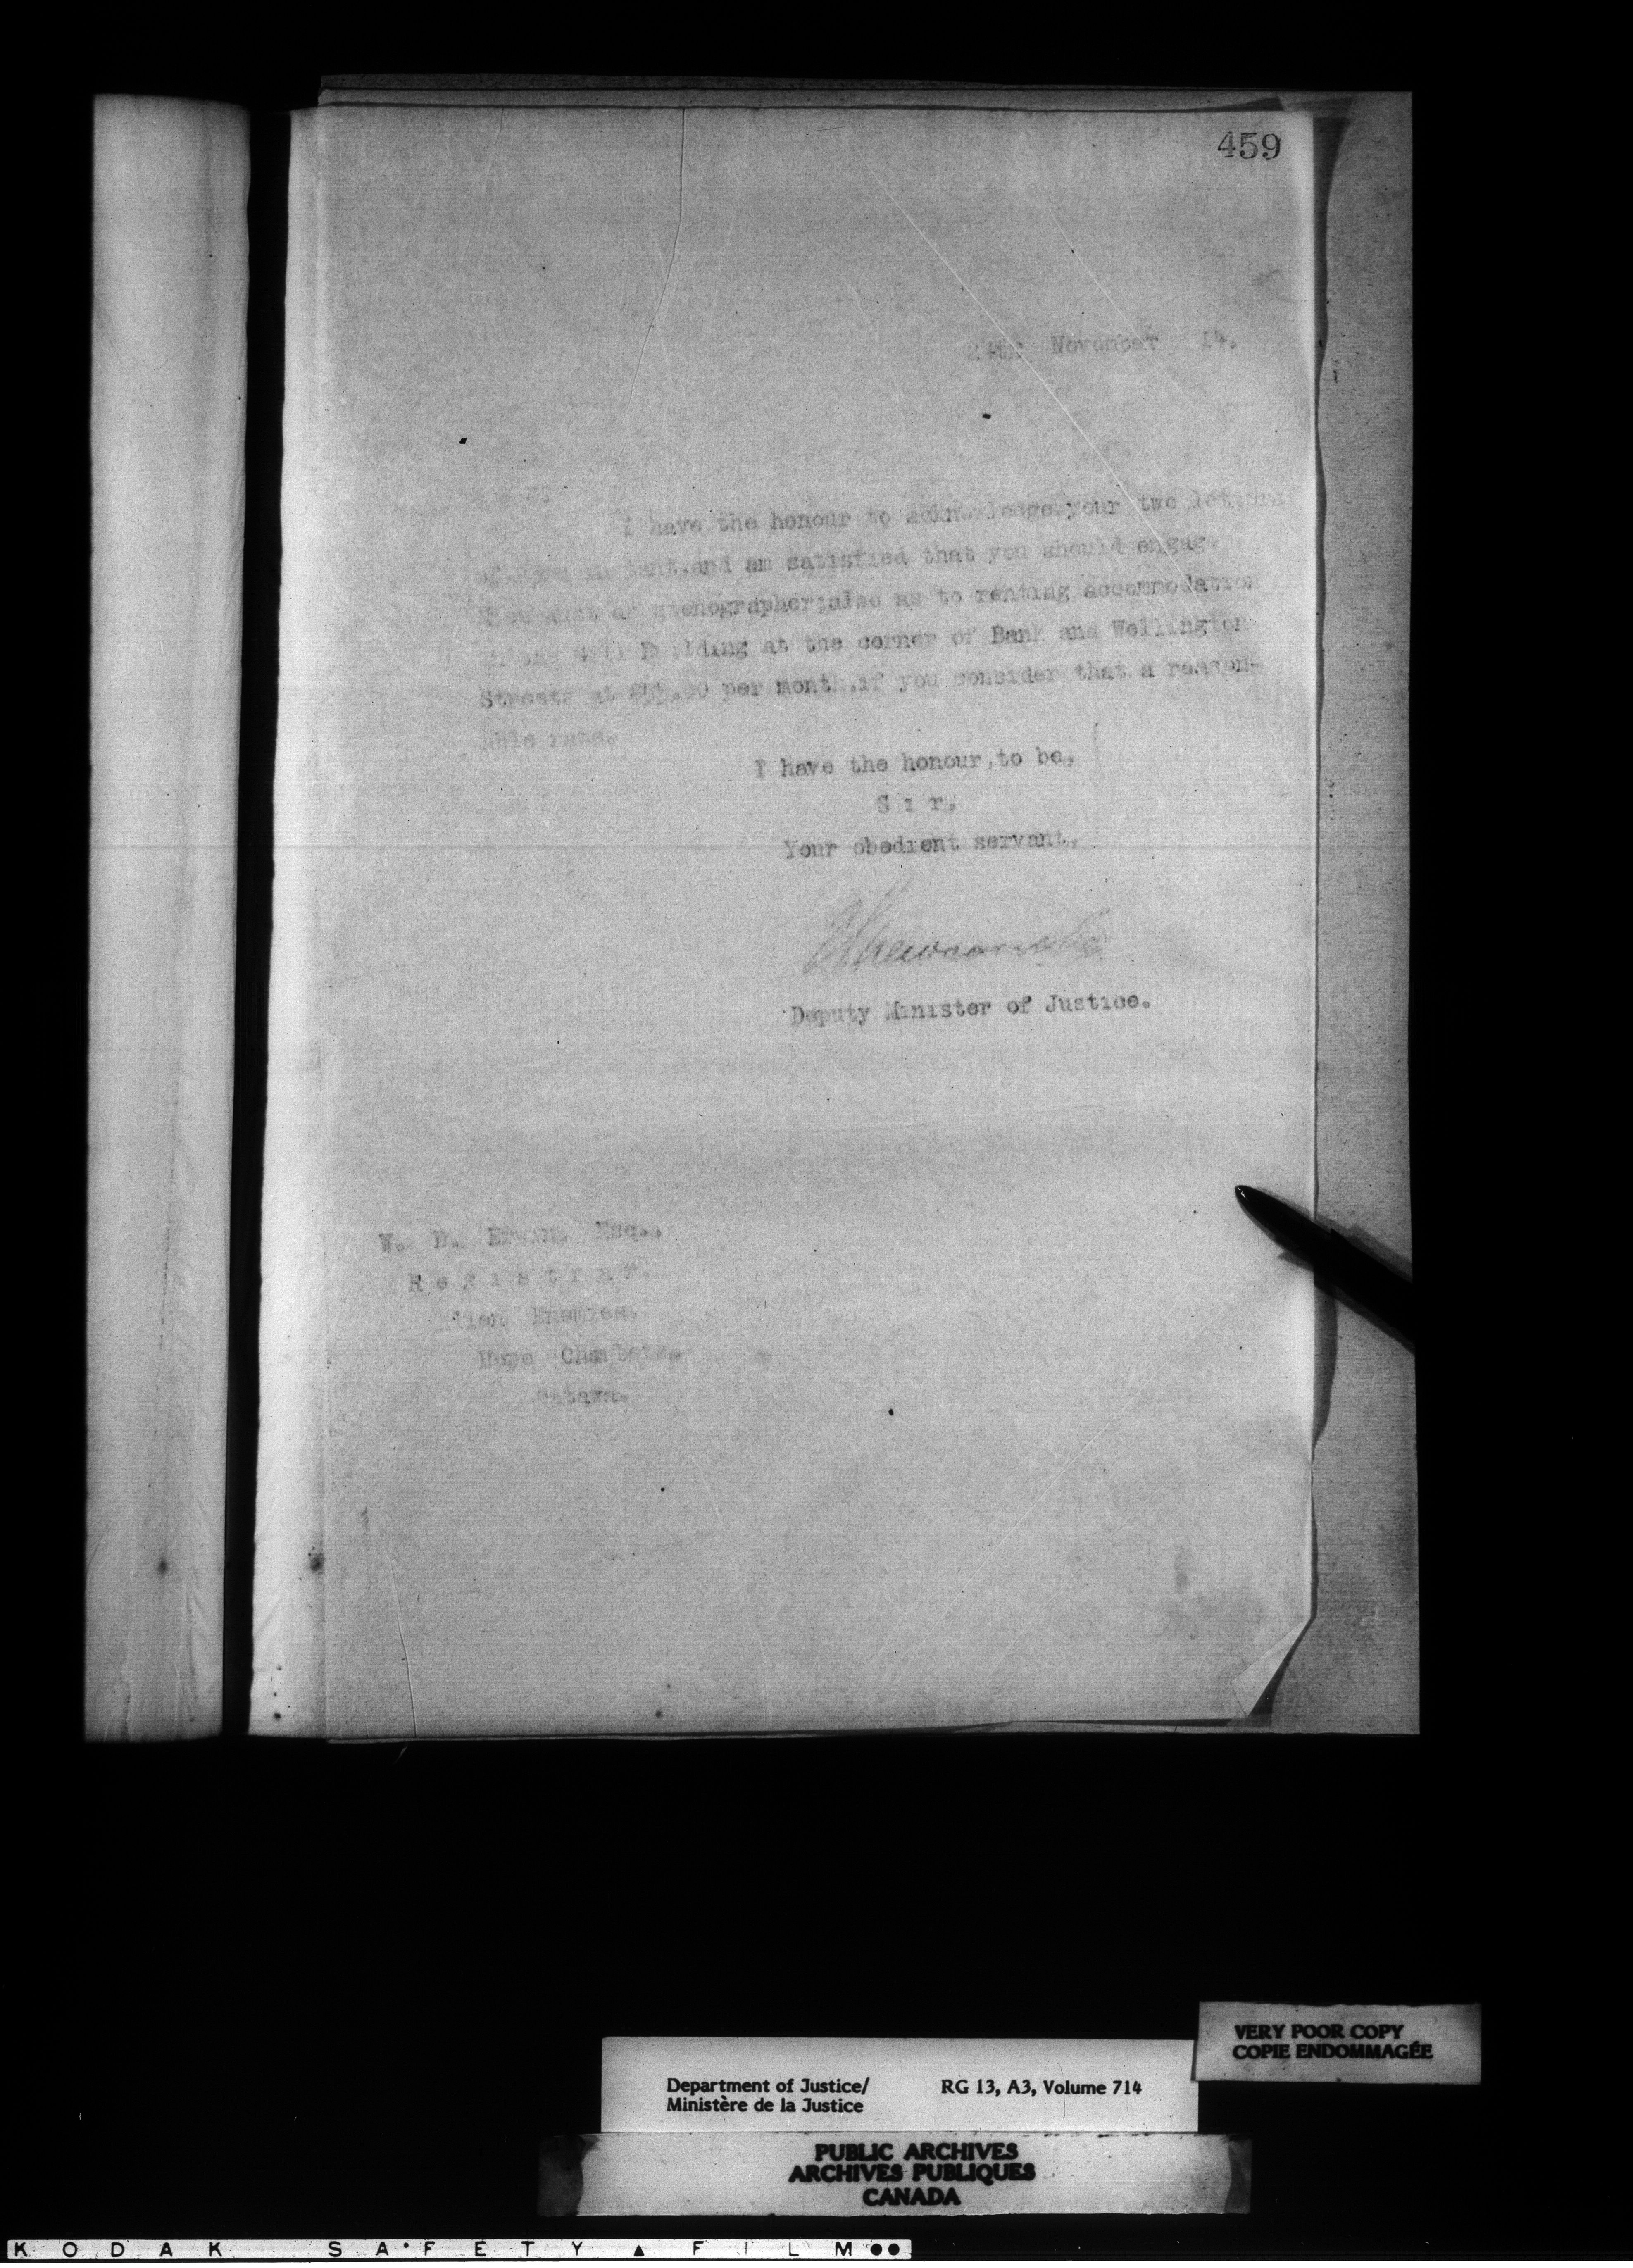 459
November 14.
I have the honour to acknowledge your two letters
and am satisfied that you should engage
stenographer;also as to renting accommodation
Building at the corner of Bank and Wellington
Streets at per month,if you consider that a reason-
able rate.
I have the honour,to be,
S i r,
Your obedient servant,
Deputy Minister of Justice.
W. D. Esq.,
R e g i s t r a r,
Alien Enemies,
Hope Chambers,
Ottawa.
VERY POOR COPY
COPIE ENDOMMAGÉE
Department of Justice/ RG 13, A3, Volume 714
Ministère de la Justice
PUBLIC ARCHIVES
ARCHIVES PUBLIQUES
CANADA
KODAK SAFETY FILM